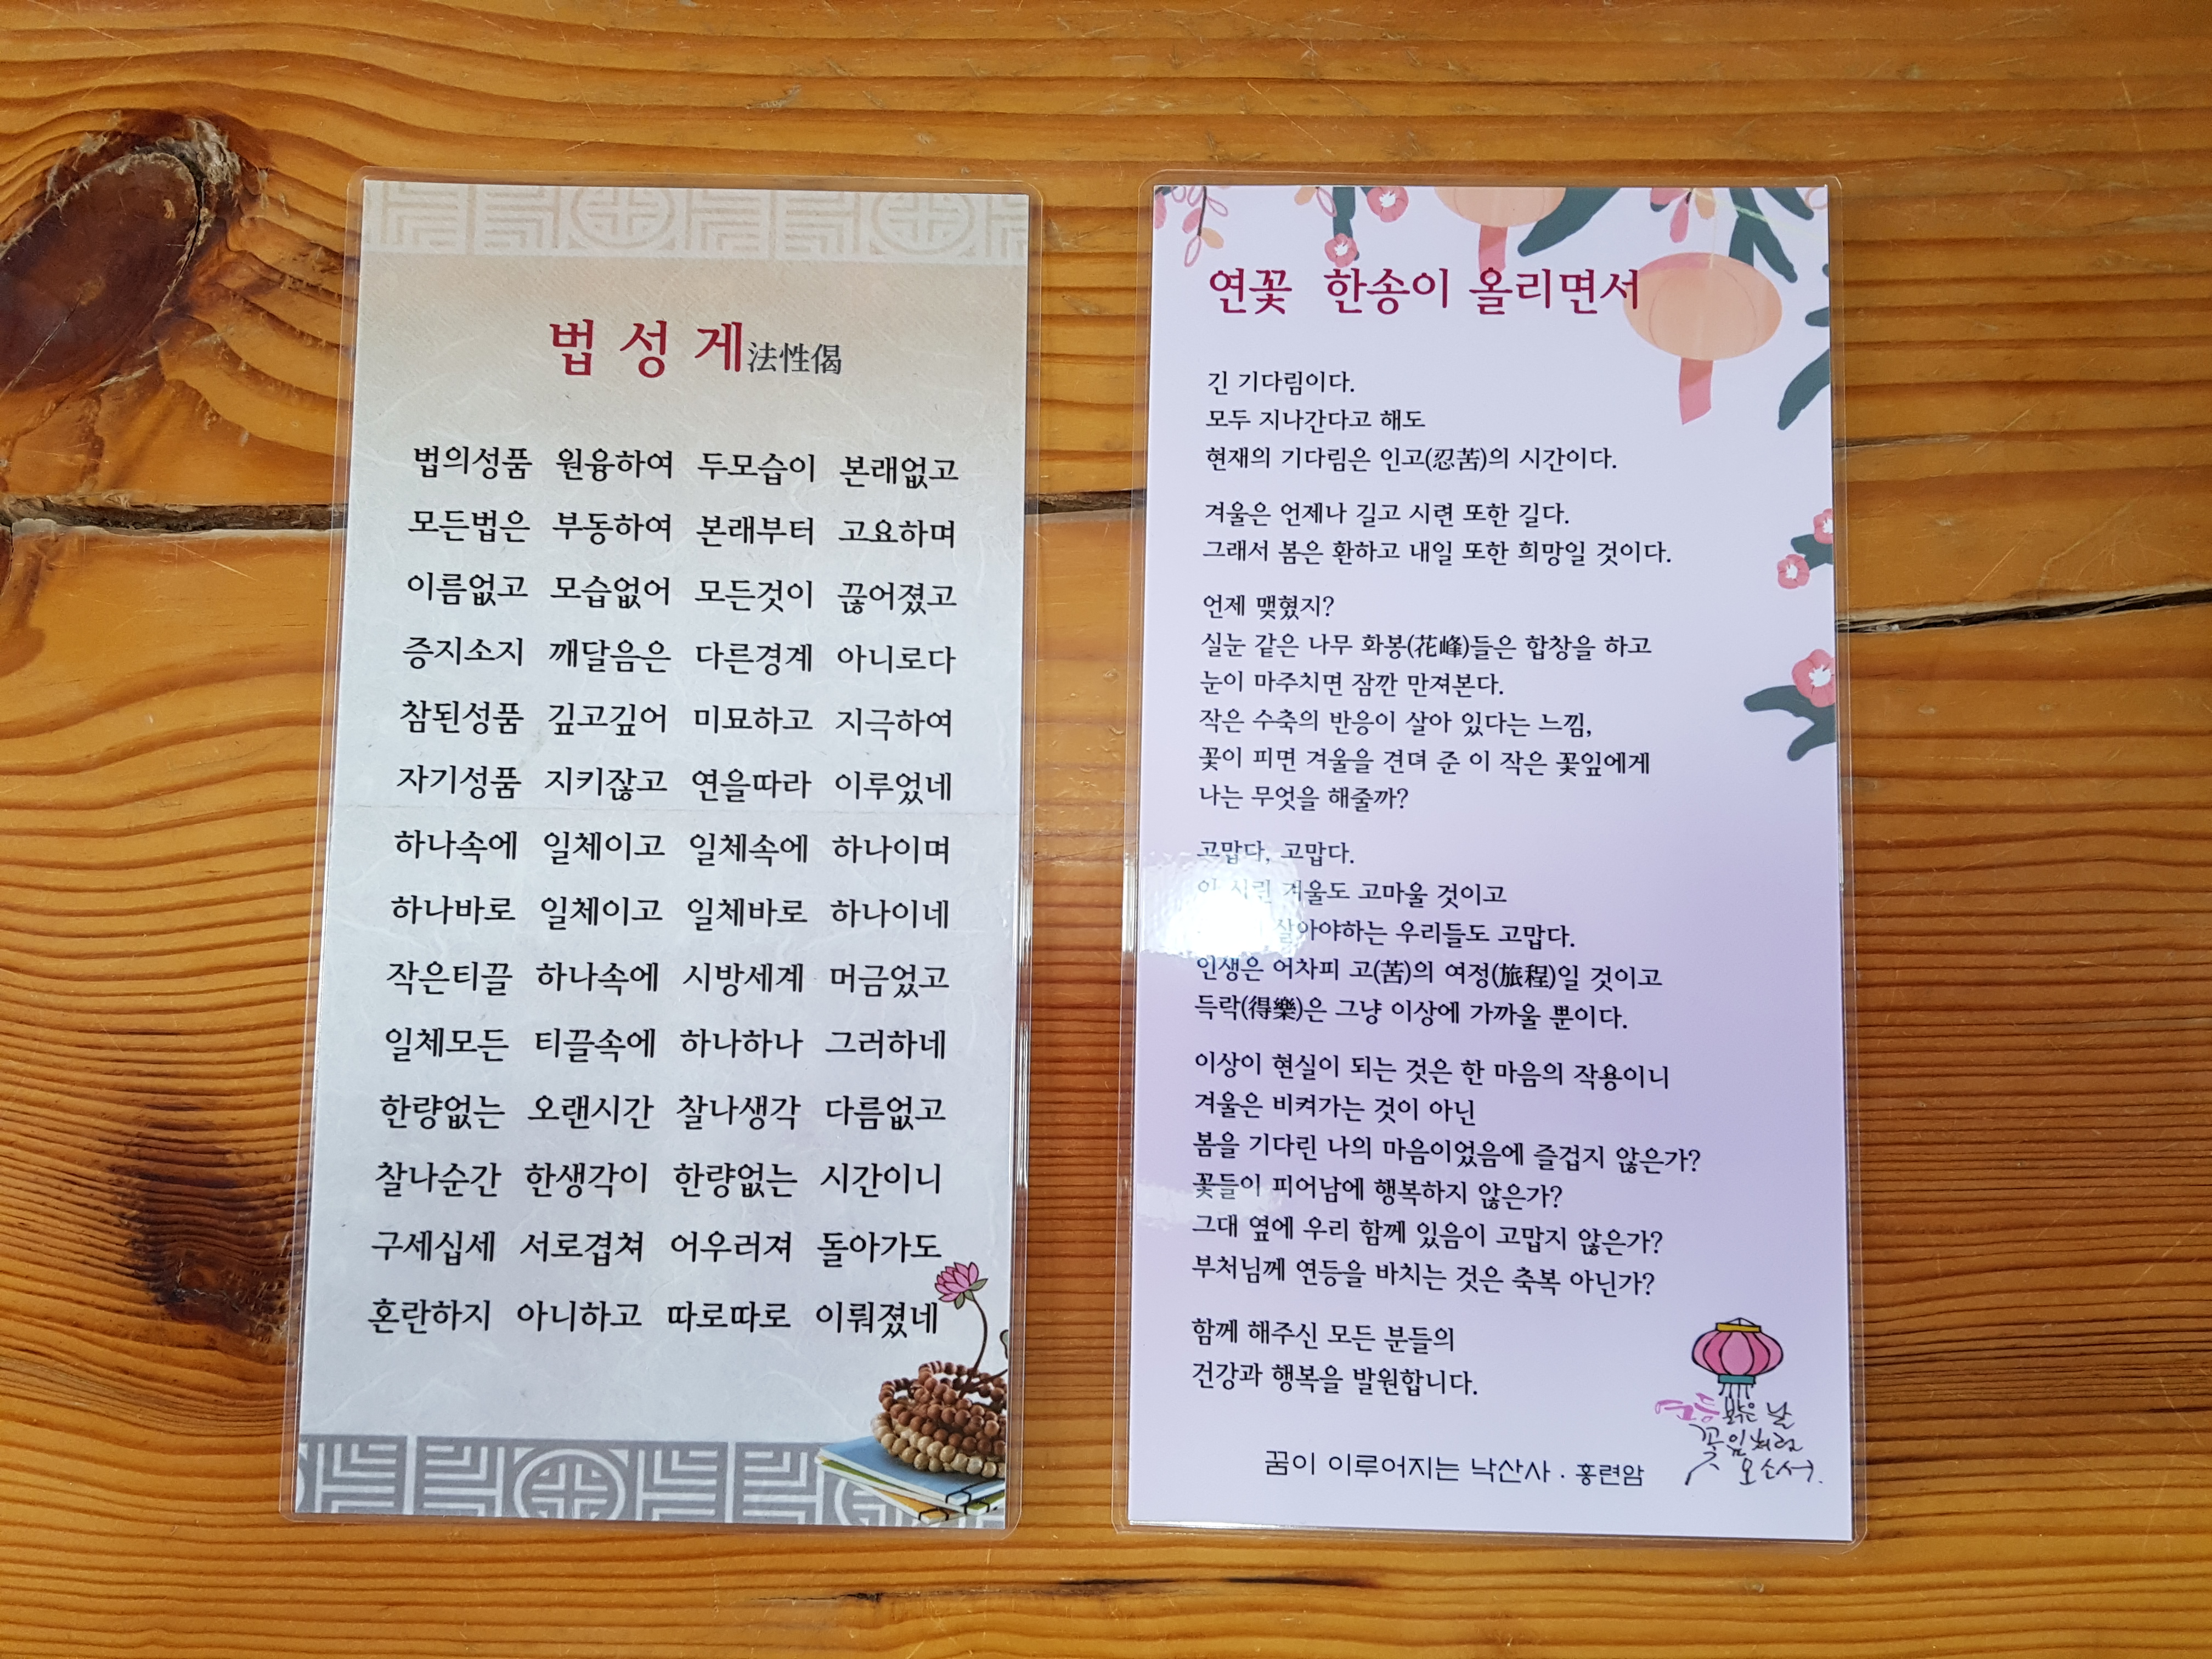 법 성 게 法性偈
법의성품 원융하여 두모습이 본래없고
모든법은 부동하여 본래부터 고요하며
이름없고 모습없어 모든것이 끊어졌고
증지소지 깨달음은 다른경계 아니로다
참된성품 깊고깊어 미묘하고 지극하여
자기성품 지키잖고 연을따라 이루었네
하나속에 일체이고 일체속에 하나이며
하나바로 일체이고 일체바로 하나이네
작은티끌 하나속에 시방세계 머금었고
일체모든 티끌속에 하나하나 그러하네
한량없는 오랜시간 찰나생각 다름없고
찰나순간 한생각이 한량없는 시간이니
구세십세 서로겹쳐 어우러져 돌아가도
혼란하지 아니하고 따로따로 이뤄졌네
연꽃 한송이 올리면서
긴 기다림이다.
모두 지나간다고 해도
현재의 기다림은 인고(忍苦)의 시간이다.
겨울은 언제나 길고 시련 또한 길다.
그래서 봄은 환하고 내일 또한 희망일 것이다.
언제 맺혔지?
실눈 같은 나무 화봉(花峰)들은 합창을 하고
눈이 마주치면 잠깐 만져본다.
작은 수축의 반응이 살아 있다는 느낌,
꽃이 피면 겨울을 견뎌 준 이 작은 꽃잎에게
나는 무엇을 해줄까?
고맙다, 고맙다.
시린 겨울도 고마울 것이고
살아야하는 우리들도 고맙다.
인생은 어차피 고(苦)의 여정(旅程)일 것이고
득락(得樂)은 그냥 이상에 가까울 뿐이다.
이상이 현실이 되는 것은 한 마음의 작용이니
겨울은 비켜가는 것이 아닌
봄을 기다린 나의 마음이었음에 즐겁지 않은가?
꽃들이 피어남에 행복하지 않은가?
그대 옆에 우리 함께 있음이 고맙지 않은가?
부처님께 연등을 바치는 것은 축복 아닌가?
함께 해주신 모든 분들의
건강과 행복을 발원합니다.
연등 밝은 날
꽃잎처럼
오소서.
꿈이 이루어지는 낙산사 · 홍련암